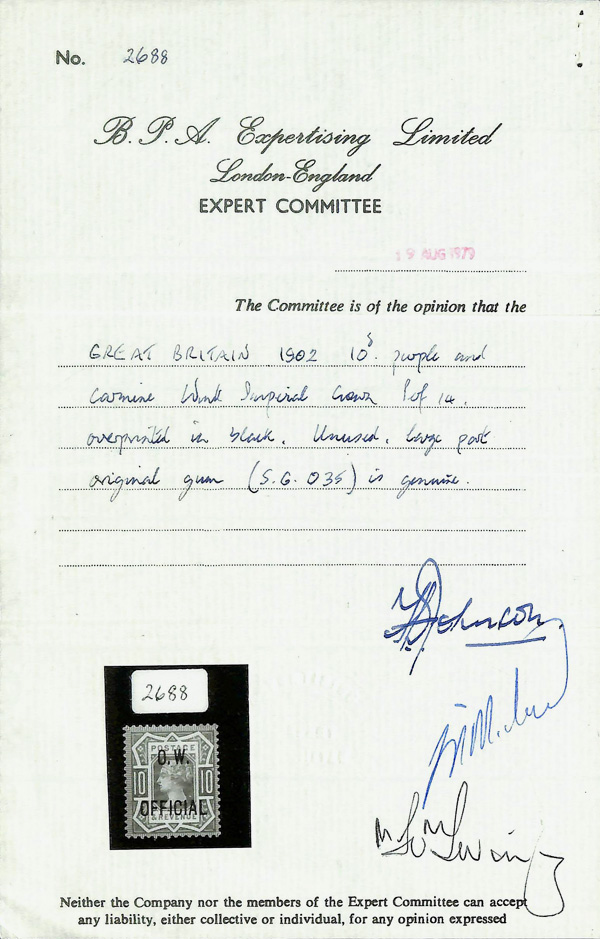 No. 2688
B. P. A. Expertising Limited
London-England
EXPERT COMMITTEE
19 AUG 1979
The Committee is of the opinion that the
GREAT BRITAIN 1902 10d. purple and
carmine Wmk Imperial Crown Perf 14.
overprinted in black. Unused, large part
original gum (S.G. O35) is genuine.
Johnson
2688
POSTAGE
O.W.
10 10
OFFICIAL
& REVENUE
Neither the Company nor the members of the Expert Committee can accept
any liability, either collective or individual, for any opinion expressed